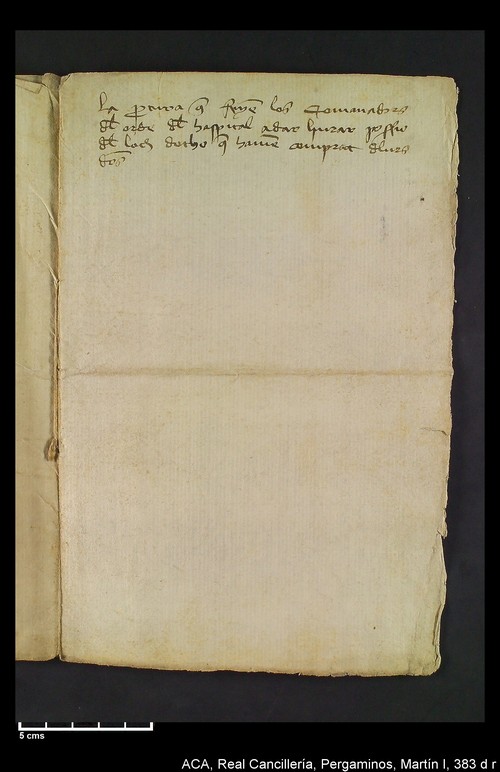 La p̱cura q̄ fīyē los Comanadors
dl̄ orde dl̄ hospital a dar liurar possio
dl̄ loch dotho q̄ hauē comprat dlurs
5 cms
ACA, Real Cancillería, Pergaminos, Martín I, 383 d r